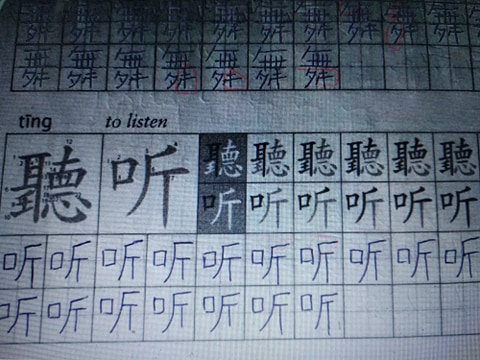 舞 舞 舞 舞 舞 舞 舞 舞 舞 舞 舞
舞 舞 舞 舞 舞 舞 舞
tīng to listen
聽 听 聽 聽 聽 聽 聽 聽
听 听 听 听 听 听
听 听 听 听 听 听 听 听 听 听
听 听 听 听 听 听 听